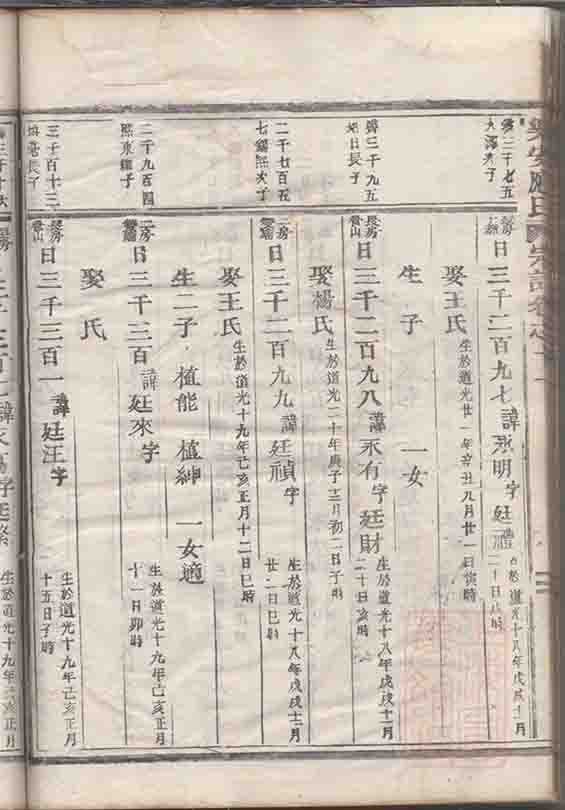 樂安應氏宗譜卷之十一
譽三千七五
次子
長房
日三千二百九七諱承明字廷禮
生於道光十八年戊戌十一月
二十日時
娶王氏
生於道光廿一年辛丑九月廿一日寅時
生子
一女
譽三千九五
長子
長房
雲山
日三千二百九八諱永有字廷財
生於道光十八年戊戌十二月
二十日亥時
娶楊氏
生於道光二十年庚子十二月初二日子時
二千七百五
七錫熙次子
二房
日三千二百九九諱廷禎字
生於道光十八年戊戌十二月
廿二日巳時
娶王氏
生於道光十九年己亥正月十二日巳時
生二子植能植紳一女適
二千九百四
熙東繼子
二房
日三千三百諱廷來字
生於道光十九年己亥正月
十一日卯時
娶氏
三千百十三
長子
長房
雲山
日三千三百一諱廷汪字
生於道光十九年己亥正月
十五日子時
三千三百二諱永萬字廷
生於道光十九年己亥正月